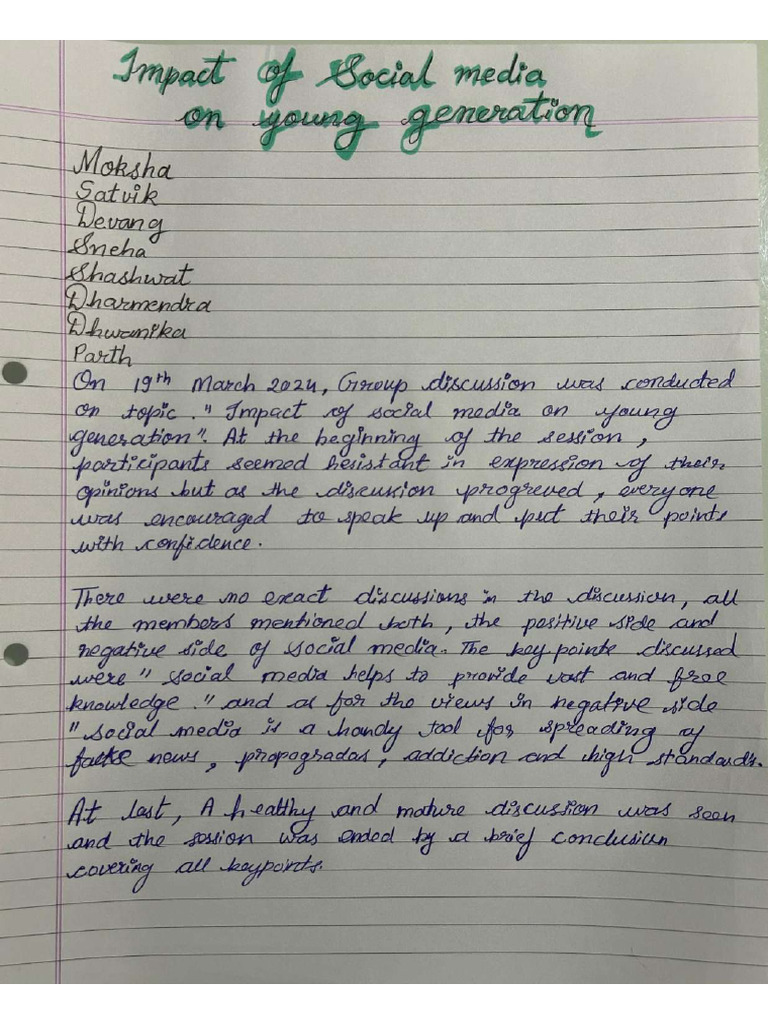 Impact of Social media
on young generation
Moksha
Satvik
Devang
Sneha
Shashwat
Dharmendra
Dhwanika
Parth
On 19th March 2024, Group discussion was conducted
on topic. "Impact of social media on young
generation". At the beginning of the session,
participants seemed hesistant in expression of their
opinions but as the discussion progressed, everyone
was encouraged to speak up and put their points
with confidence.
There were no exact discussions in the discussion, all
the members mentioned both, the positive side and
negative side of social media. The key points discussed
were "social media helps to provide vast and free
knowledge." and as for the views in negative side
"social media is a handy tool for spreading of
fake news, propogradas, addiction and high standards.
At last, A healthy and mature discussion was seen
and the session was ended by a brief conclusion
covering all keypoints.